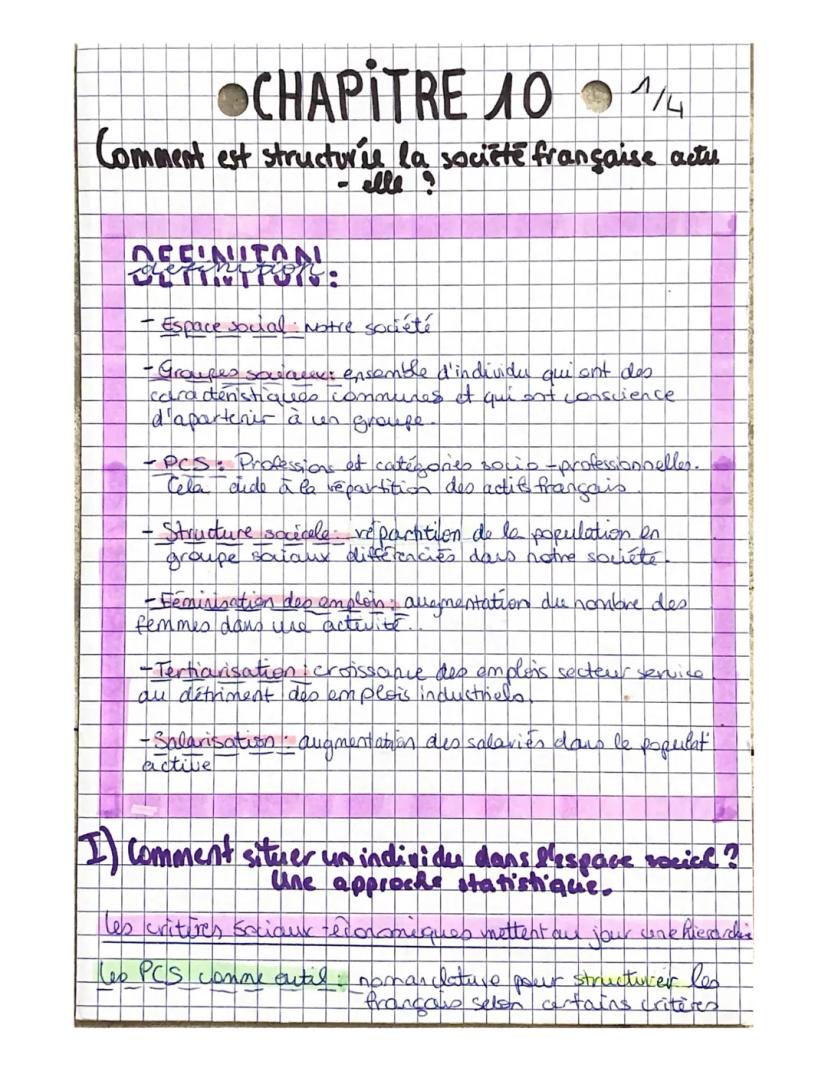 CHAPITRE 10 1/4
Comment est structurée la société française actu
- elle ?
DEFINITON
définition :
- Espace social : Notre société
- Groupes sociaux : ensemble d'individu qui ont des
caractéristiques communes et qui ont conscience
d'apartenir à un groupe.
- PCS : Professions et catégories socio-professionnelles.
Cela aide à la répartition des actifs français.
- Structure sociale : répartition de la population en
groupe sociaux différenciés dans notre société.
- Féminisation des emplois : augmentation du nombre des
femmes dans une activité..
- Tertiarisation : croissance des emplois secteur service
au détriment des emplois industriels.
- Salarisation : augmentation des salariés dans la populat°
active
I) Comment situer un individu dans l'espace social ?
Une approche statistique.
Les critères sociaux-économiques mettent au jour une hierarchie
Les PCS comme outil : nomanclature pour structurer les
français selon certains critères